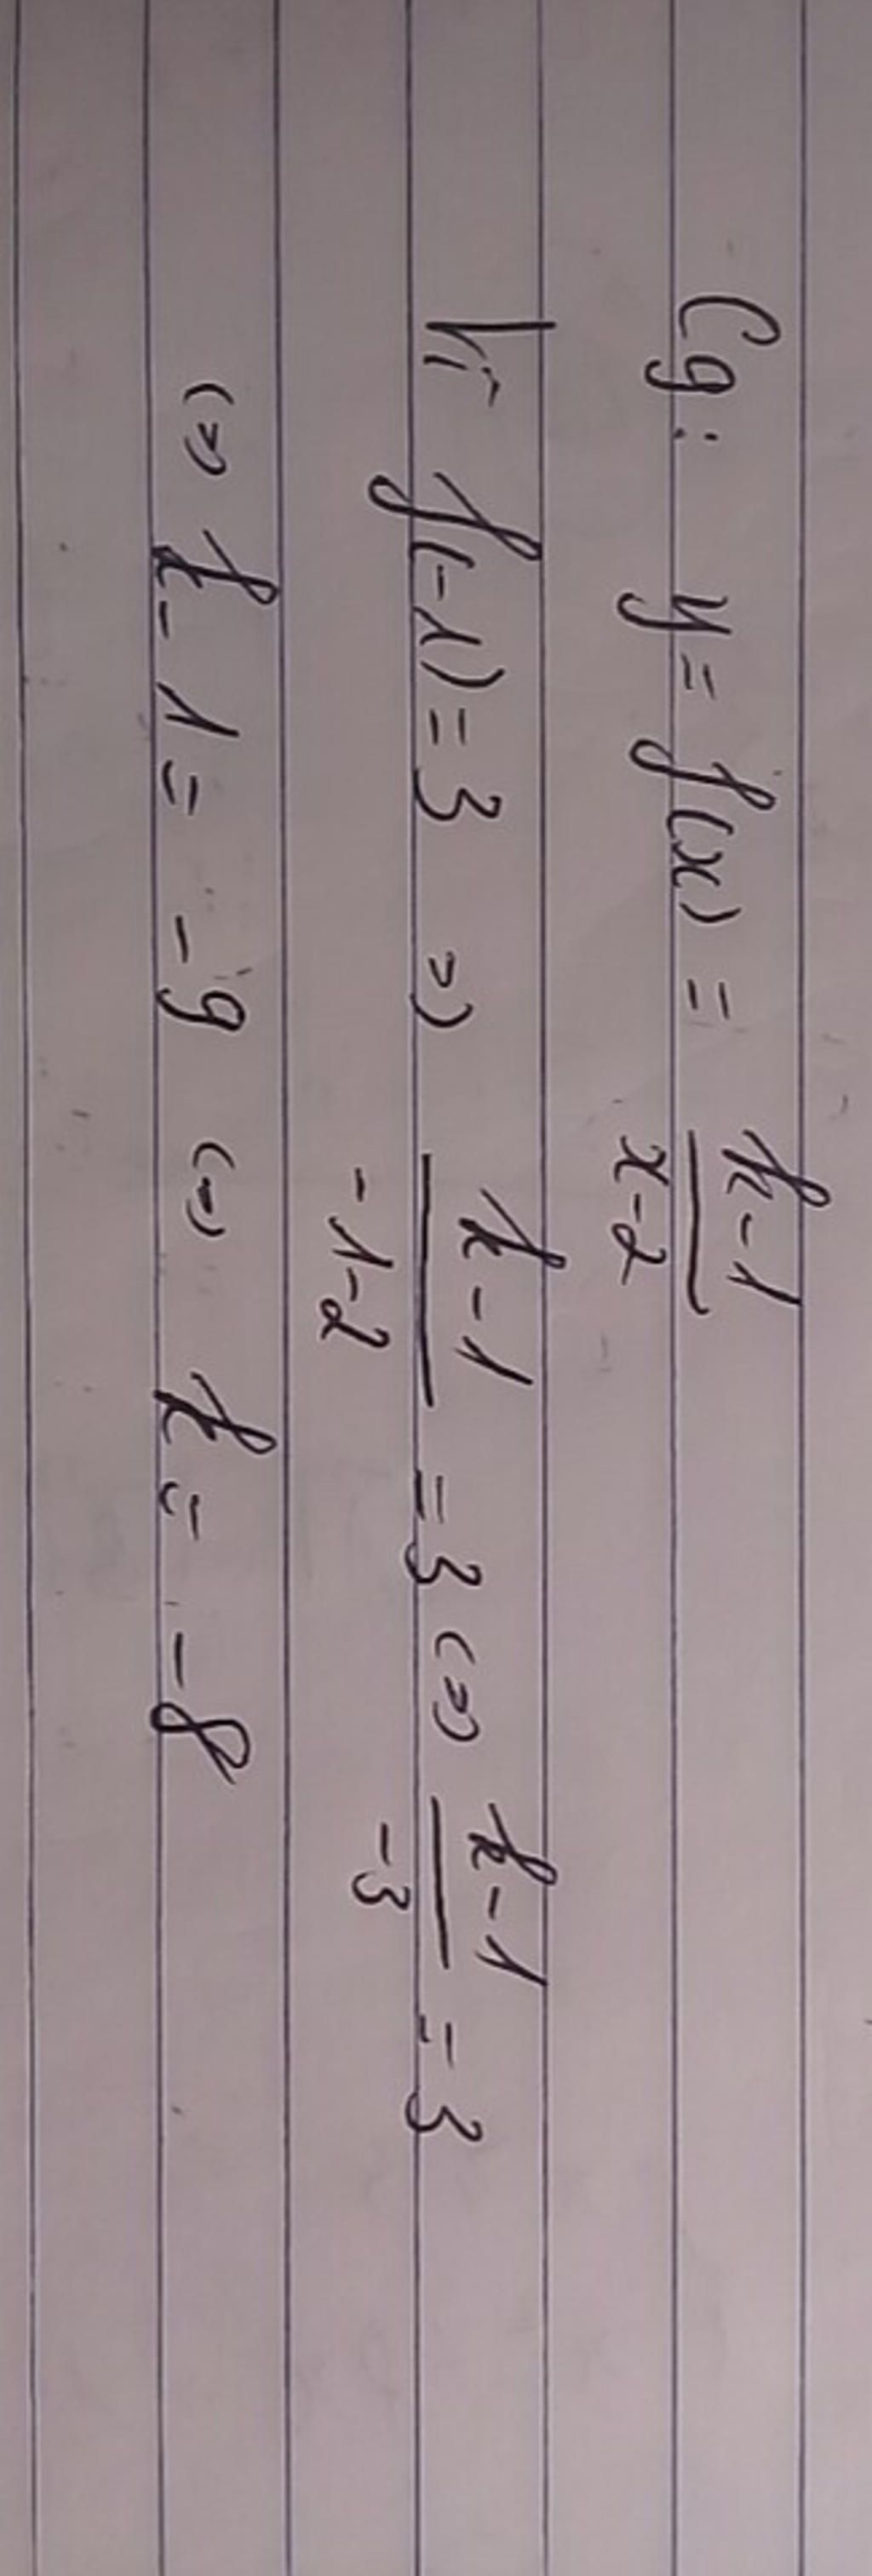 C9: y = f(x) = \frac{k-1}{x-2}
Vì f(-1) = 3 => \frac{k-1}{-1-2} = 3 <=> \frac{k-1}{-3} = 3
<=> k - 1 = -9 <=> k = -8